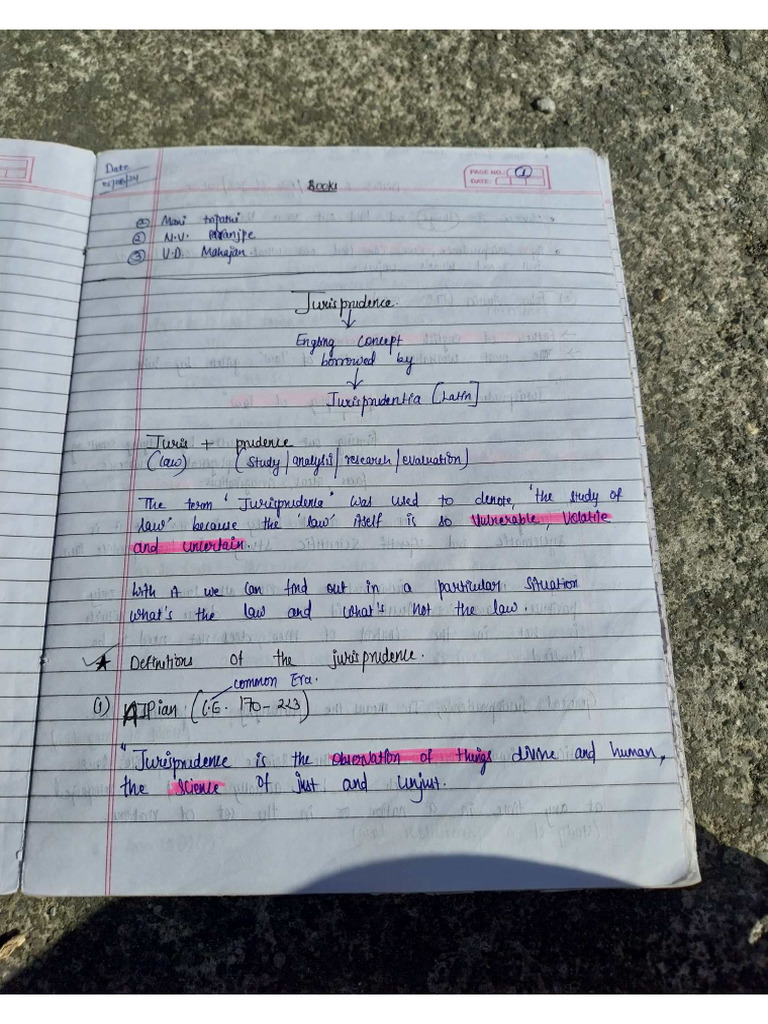 Date
PAGE NO.: 1
DATE:
Books
① Mani tripathi
② N.V. Paranjpe
③ V.D. Mahajan
Jurisprudence.
↓
concept
borrowed by
↓
Jurisprudentia [Latin]
Juris + prudence
(law) (study/analysis/research/evaluation)
The term "Jurisprudence" was used to denote, 'the study of
law' because the 'law' itself is so vulnerable volatile
and uncertain.
With it we can find out in a particular situation
what's the law and what's not the law.
★ Definitions of the jurisprudence.
common Era.
(1) (C.E. 170-223)
"Jurisprudence is the observation of things divine and human,
the science of just and unjust.